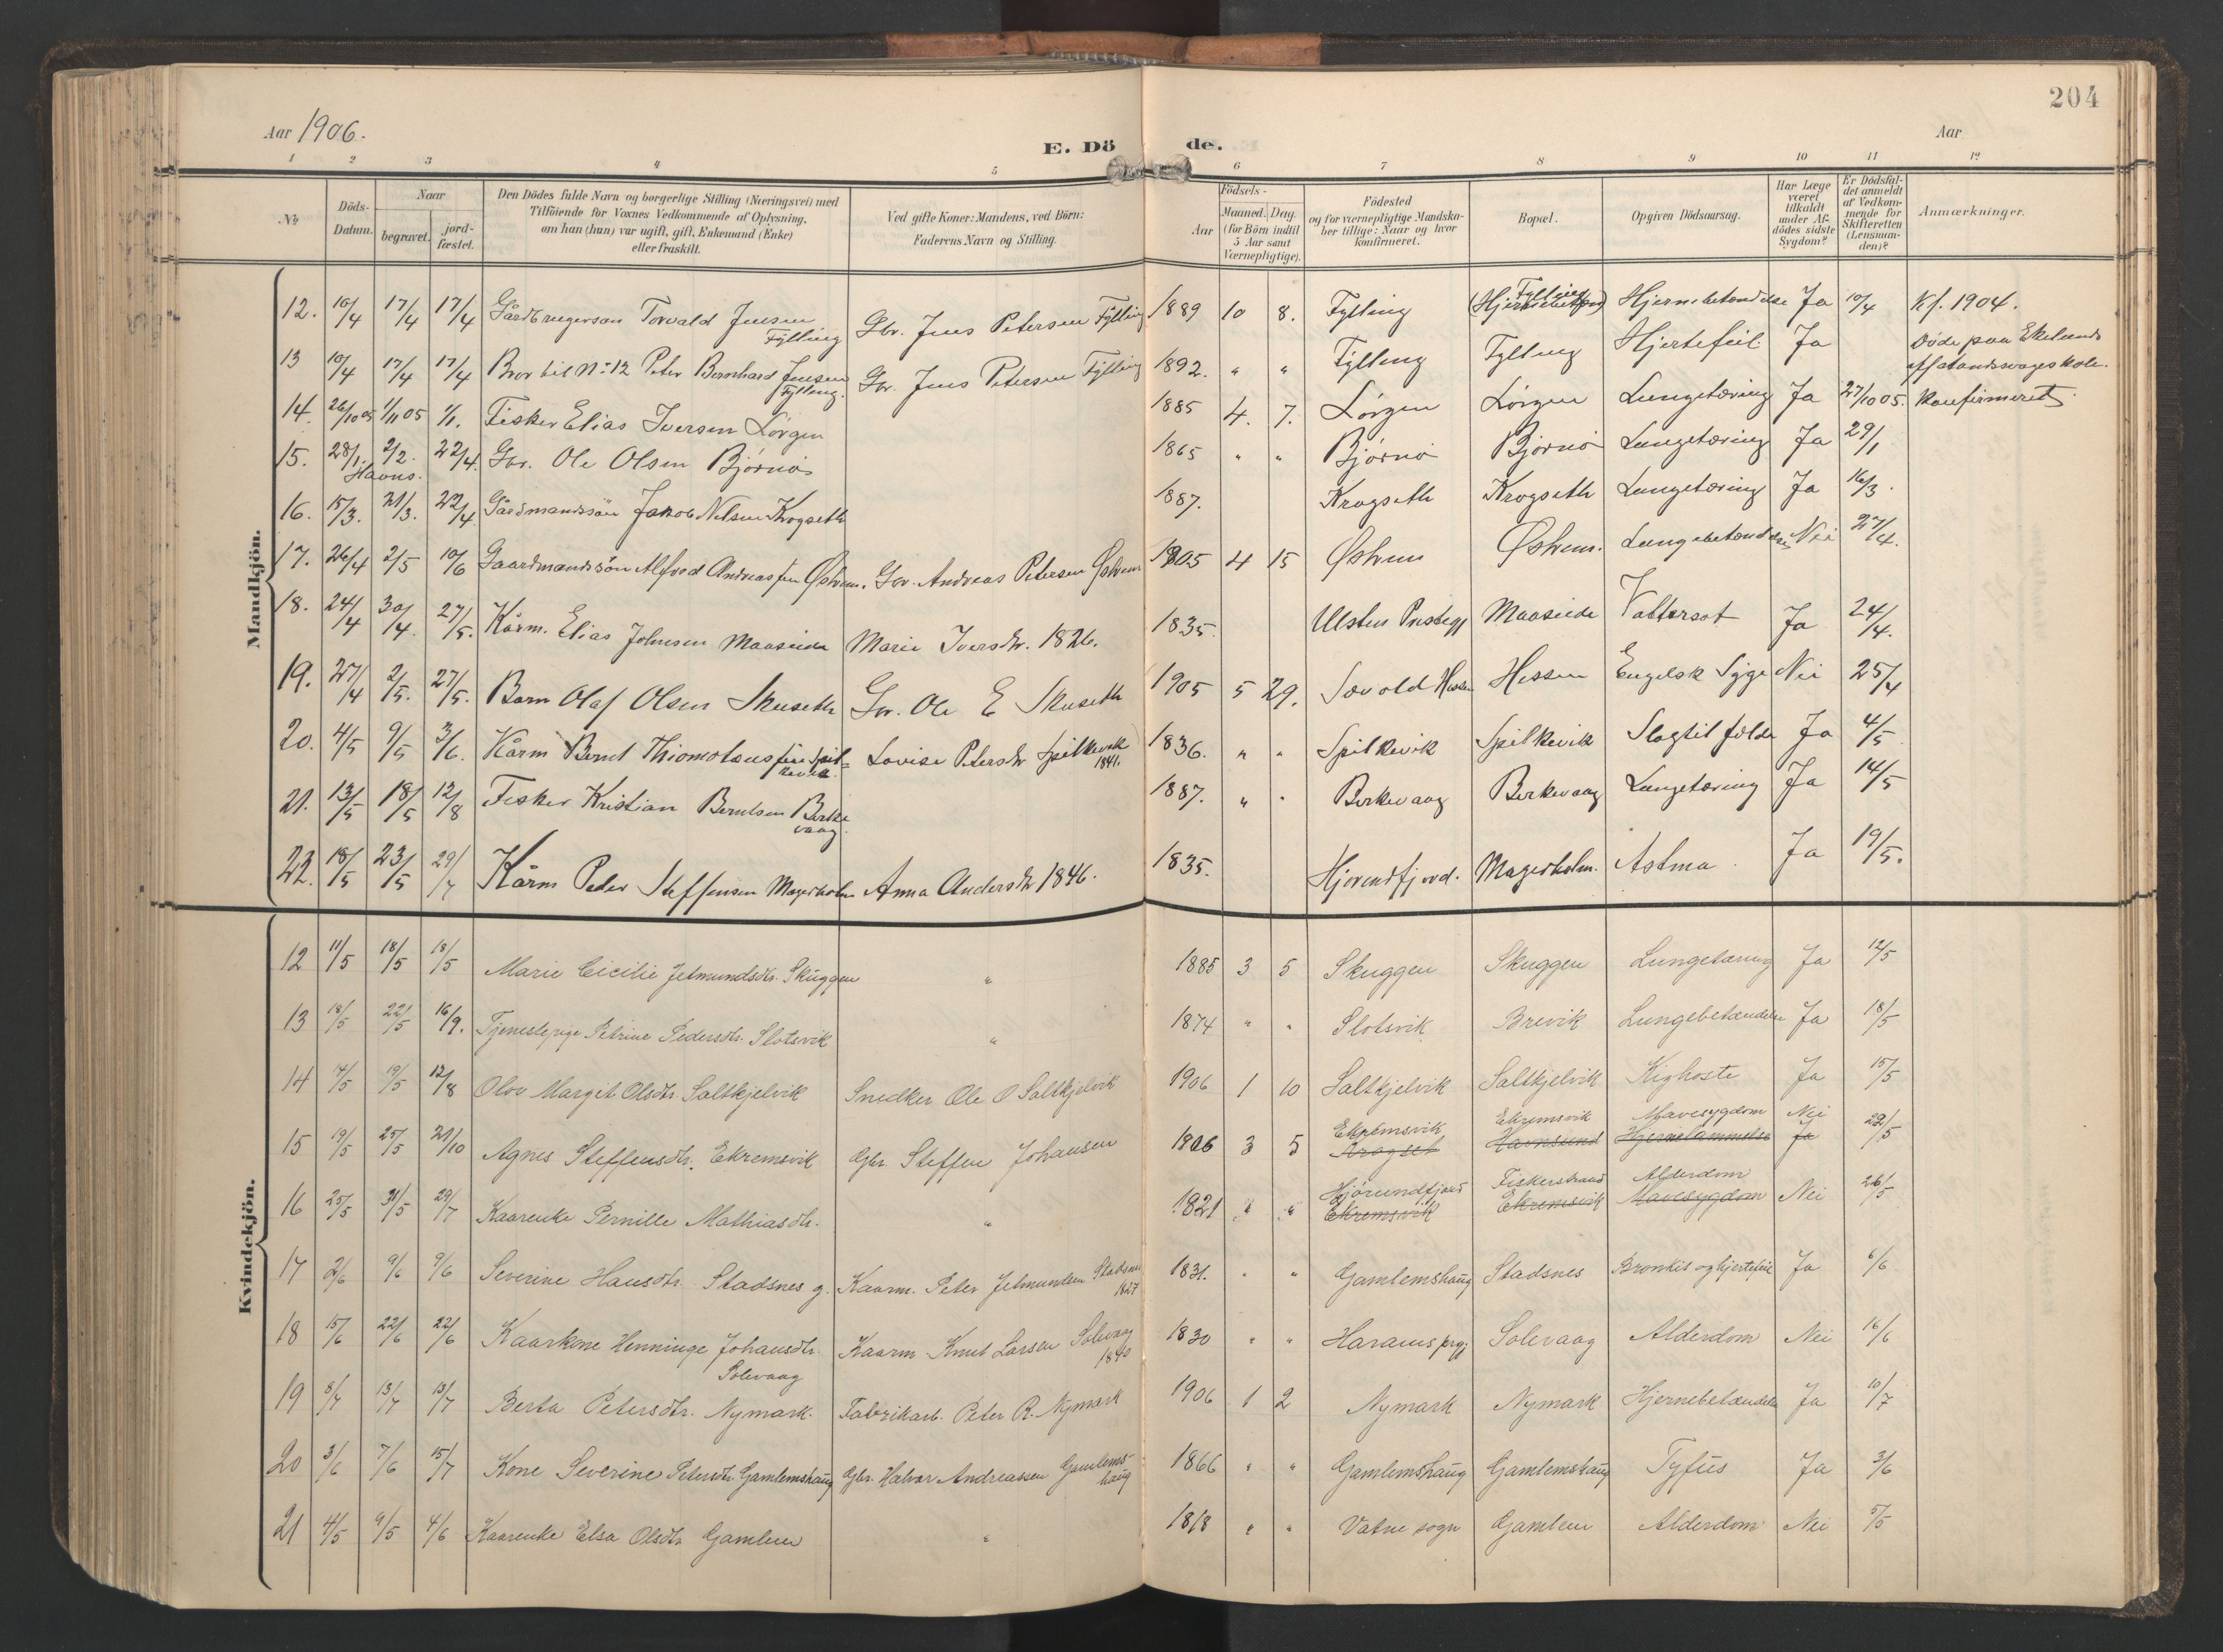 204
Aar 1906.
E. Dö de.
Aar
1 2 3 4 5 6 7 8 9 10 11 12
№
Döds-Datum.
Naar
begravet.
jord-fæstet.
Den Dödes fulde Navn og borgerlige Stilling (Næringsvei) med
Tilföiende for Voxnes Vedkommende af Oplysning,
om han (hun) var ugift, gift, Enkemand (Enke)
eller fraskilt.
Ved gifte Koner: Mandens, ved Börn:
Faderens Navn og Stilling.
Födsels-
Aar
Maaned. Dag.
(for Börn indtil
5 Aar samt
Værnepligtige).
Födested
og for værnepligtige Mandska-
ber tillige: Naar og hvor
konfirmeret.
Bopæl.
Opgiven Dödsaarsag.
Har Læge
været
tilkaldt
under Af-
dödes sidste
Sygdom?
Er Dödsfal-
det anmeldt
af Vedkom-
mende for
Skifteretten
(Lensman-
den)?
Anmærkninger.
Mandkjön.
12. 10/4 17/4 17/4 Gårdbrugersøn Torvald Jensen Fylling Gbr. Jens Petersen Fylling 1889 10 8. Fylling Fylling Hjernebetændelse Ja 10/4 Kf. 1904.
13 10/4 17/4 17/4 Bror til No 12 Peter Bernhard Jensen Fylling. Gbr. Jens Petersen Fylling 1892. " " Fylling Fylling Hjertefeil Ja Døde paa Ekelunds aff standssvageskole.
14. 26/10 05 1/11 05 1/1. Fisker Elias Iversen Lørgen 1885 4. 7. Lørgen Lørgen Lungetæring Ja 27/10 05. Konfirmeret.
15. 28/1. 2/2. 22/4. Gbr. Ole Olsen Bjørnø 1865 " " Bjørnø Bjørnø Lungetæring Ja 29/1
Havns.
16. 15/3. 21/3. 22/4 Gårdmandssøn Jakob Nilsen Krogseth 1887. Krogseth Krogseth Lungetæring Ja 16/3.
17. 26/4 2/5 10/6 Gaardmandssøn Alfred Andreassen Østrem. Gbr. Andreas Petersen Østrem 1905 4 15 Østrem Østrem. Lungebetændelse Nei 27/4.
18. 24/4 30/4. 27/5. Kårm. Elias Johnsen Maaseide Marie Iversdr. 1826. 1835. Ulsten Prestegj Maaseide Vattersot Ja 24/4.
19. 25/4 2/5. 27/5. Barn Olaf Olsen Skuseth Gbr. Ole E Skuseth 1905 5 29. Sævold Hessen Hessen Engelsk Syge Nei 25/4
20. 4/5 9/5 3/6. Kårm Bernt Thiomoteussen Spilkevik. Lovise Petersdr Spilkevik 1841. 1836. " " Spilkevik Spilkevik Slagtilfælde Ja 4/5
21. 13/5 18/5 12/8 Fisker Kristian Berntsen Birkevaag. 1887. " " Birkevaag Birkevaag Lungetæring Ja 14/5
22. 18/5 23/5 29/7 Kårm Peder Steffensen Magerholm Anna Andersdr 1846. 1835. Hjørendfjord. Magerholm. Astma. Ja 19/5.
Kvindekjön.
12 11/5 18/5 18/5 Marie Cicilie Jetmundsdtr. Skuggen " 1885 3 5 Skuggen Skuggen Lungetæring Ja 12/5
13 18/5 22/5 16/9. Tjenestepige Petrine Pedersdtr. Slotsvik " 1874 " " Slotsvik Brevik Lungebetændelse Ja 18/5
14 14/5 19/5 12/8 Olov Margit Olsdtr. Saltkjelvik Snedker Ole O Saltkjelvik 1906 1 10 Saltkjelvik Saltkjelvik Kighoste Ja 15/5
15 19/5 25/5 21/10 Agnes Steffensdtr. Ekremsvik Gbr. Steffen Johansen 1906 3 5 Ekremsvik Krogset Ekremsvik Havnsund Mavesygdom Hjernelammelse Nei Ja 22/5
16 25/5 31/5 29/7 Kaarenke Pernille Mathiasdtr. " 1821 " " Hjørundfjord Ekremsvik Fiskerstrand Ekremsvik Alderdom Mavesygdom Nei 26/5
17 2/6 9/6 9/6 Severine Hansdtr. Stadsnes g. Kaarm. Peter Jetmundsen Stadsnes 1827 1831. " " Gamlemshaug Stadsnes Bronkit og hjertefeil Ja 6/6
18 15/6 22/6 22/6 Kaarkone Henninge Johansdtr. Solevaag Kaarm. Knut Larsen Solevaag 1840 1830 " " Harams prgj Solevaag Alderdom Nei 16/6
19 8/7 13/7 13/7 Berta Petersdtr. Nymark. Fabrikarb. Peter R. Nymark 1906 1 2 Nymark Nymark Hjernebetændelse Ja 10/7
20 3/6 7/6 15/7 Kone Severine Petersdtr. Gamlemshaug Gbr. Halvor Andreassen Gamlemshaug 1866 " " Gamlemshaug Gamlemshaug Tyfus Ja 3/6
21 4/5 9/5 4/6 Kaarenke Elsa Olsdtr Gamlem " 1818 " " Vatne sogn Gamlem Alderdom Nei 5/5